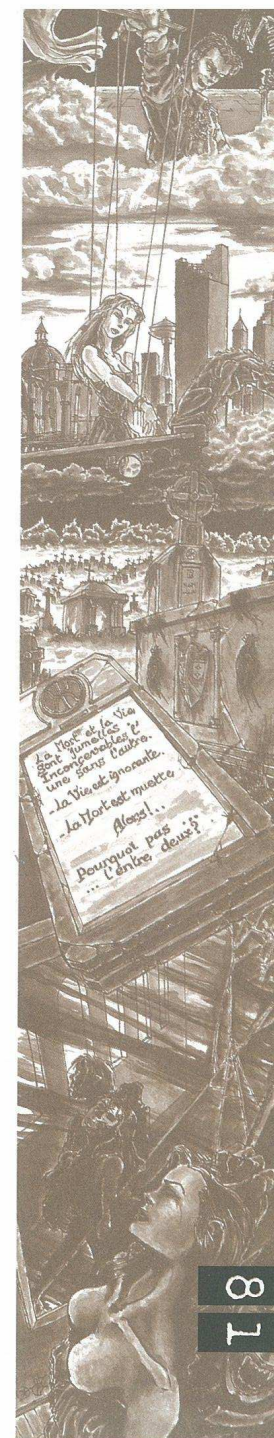 La Mort et la Vie
sont jumelles
inconcevables l'
une sans l'autre.
La Vie est ignorante.
La Mort est muette
Alors!..
Pourquoi pas
... l'entre deux?
81